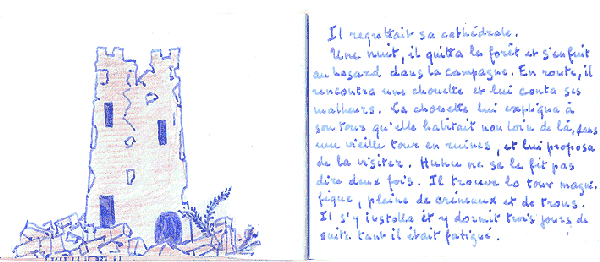 Il regrettait sa cathédrale.
Une nuit, il quitta la forêt et s'enfuit
au hasard dans la campagne. En route, il
rencontra une chouette et lui conta ses
malheurs. La chouette lui expliqua à
son tour qu'elle habitait non loin de là, dans
une vieille tour en ruines, et lui proposa
de la visiter. Huhu ne se le fit pas
dire deux fois. Il trouve la tour magni-
fique, pleine de créneaux et de trous.
Il s'y installa et y dormit trois jours de
suite tant il était fatigué.